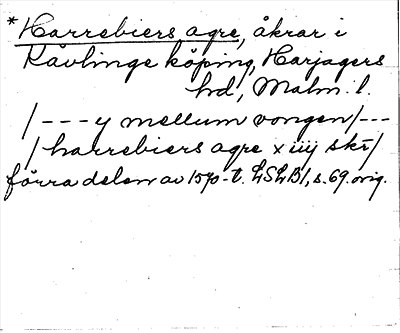 * Harrebiers agre, åkrar i
Kävlinge köping, Harjagers
hd, Malm. l.
/ - - - y mellum vongen / - - -
/ harrebiers agre x iiij skr /
förra delen av 1570-t. LSLB 1, s. 69. orig.